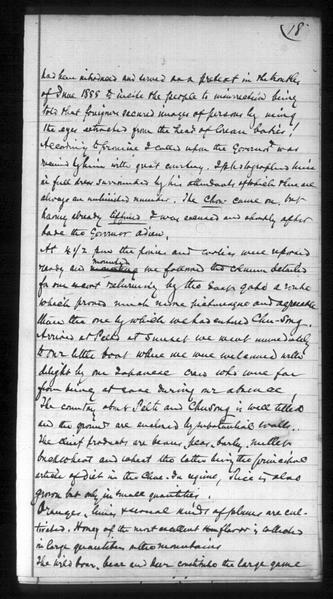 18
had been introduced and served as a pretext in the troubles
of June 1888 to incite the people to insurrection being
told that foreigners secured images of persons by using
the eyes extracted from the head of Corean babies!
According to promise I called upon the Governor & was
received by him with great courtesy. I photographed him
in full dress surrounded by his attendants of which there are
always an unlimited number. The Chow came on, but
having already tiffined I was excused and shortly after
bade the Governor adieu.
At 4 1/2 p.m. the ponies and coolies were reported
ready and mounted we followed the column detailed
for our escort returning by the East gate a route
which proved much more picturesque and agreeable
than the one by which we had entered Chu-Song.
Arrived at Petts at Sunset we went immediately
to our little boat where we were welcomed with
delight by our Japanese crew who were far
from being at ease during our absence.
The country about Petts and Chusong is well tilled
and the grounds are enclosed by substantial walls.
The chief products are beans, peas, barley, millet
buckwheat and wheat the latter being the principal
article of diet in the region, Rice is also
grown but only in small quantities.
Oranges, limes & several kinds of plums are cul-
tivated. Honey of the most excellent flavor is collected
in large quantities in the mountains
The wild boar, bear and deer constitute the large game